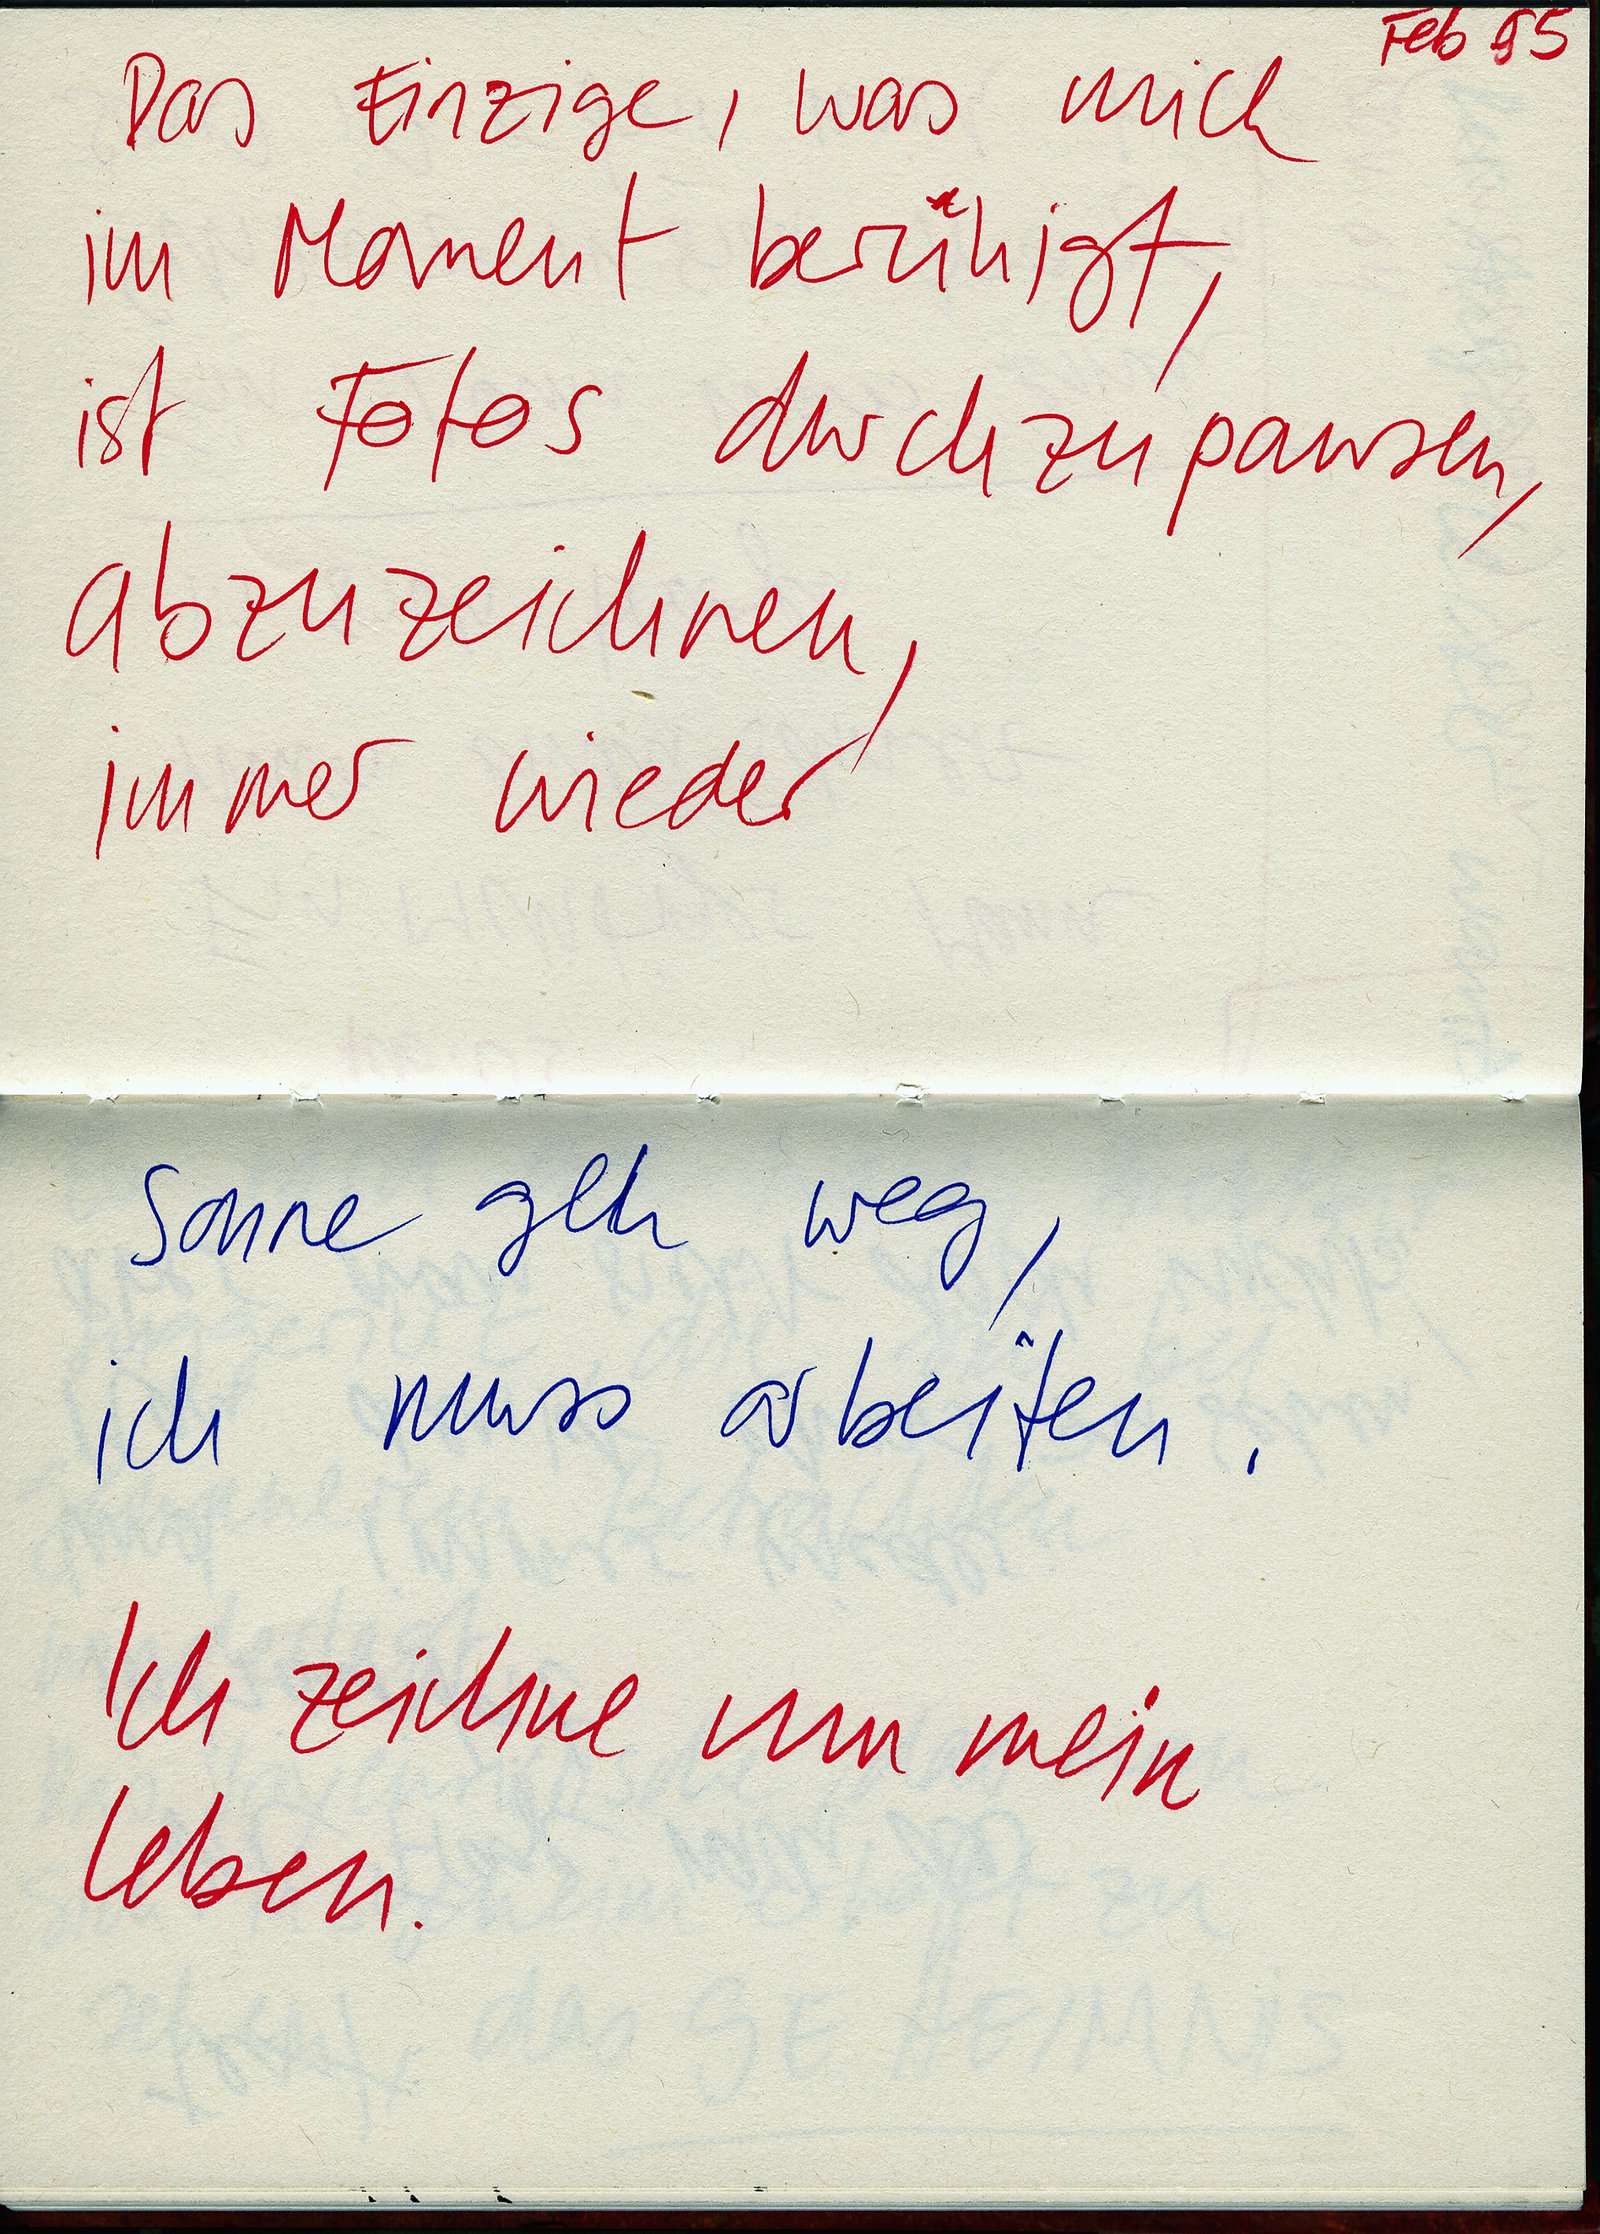 Feb 95
Das Einzige, was mich
im Moment beruhigt,
ist Fotos durchzupausen,
abzuzeichnen,
immer wieder
Sonne geh weg,
ich muss arbeiten.
Ich zeichne um mein
Leben.